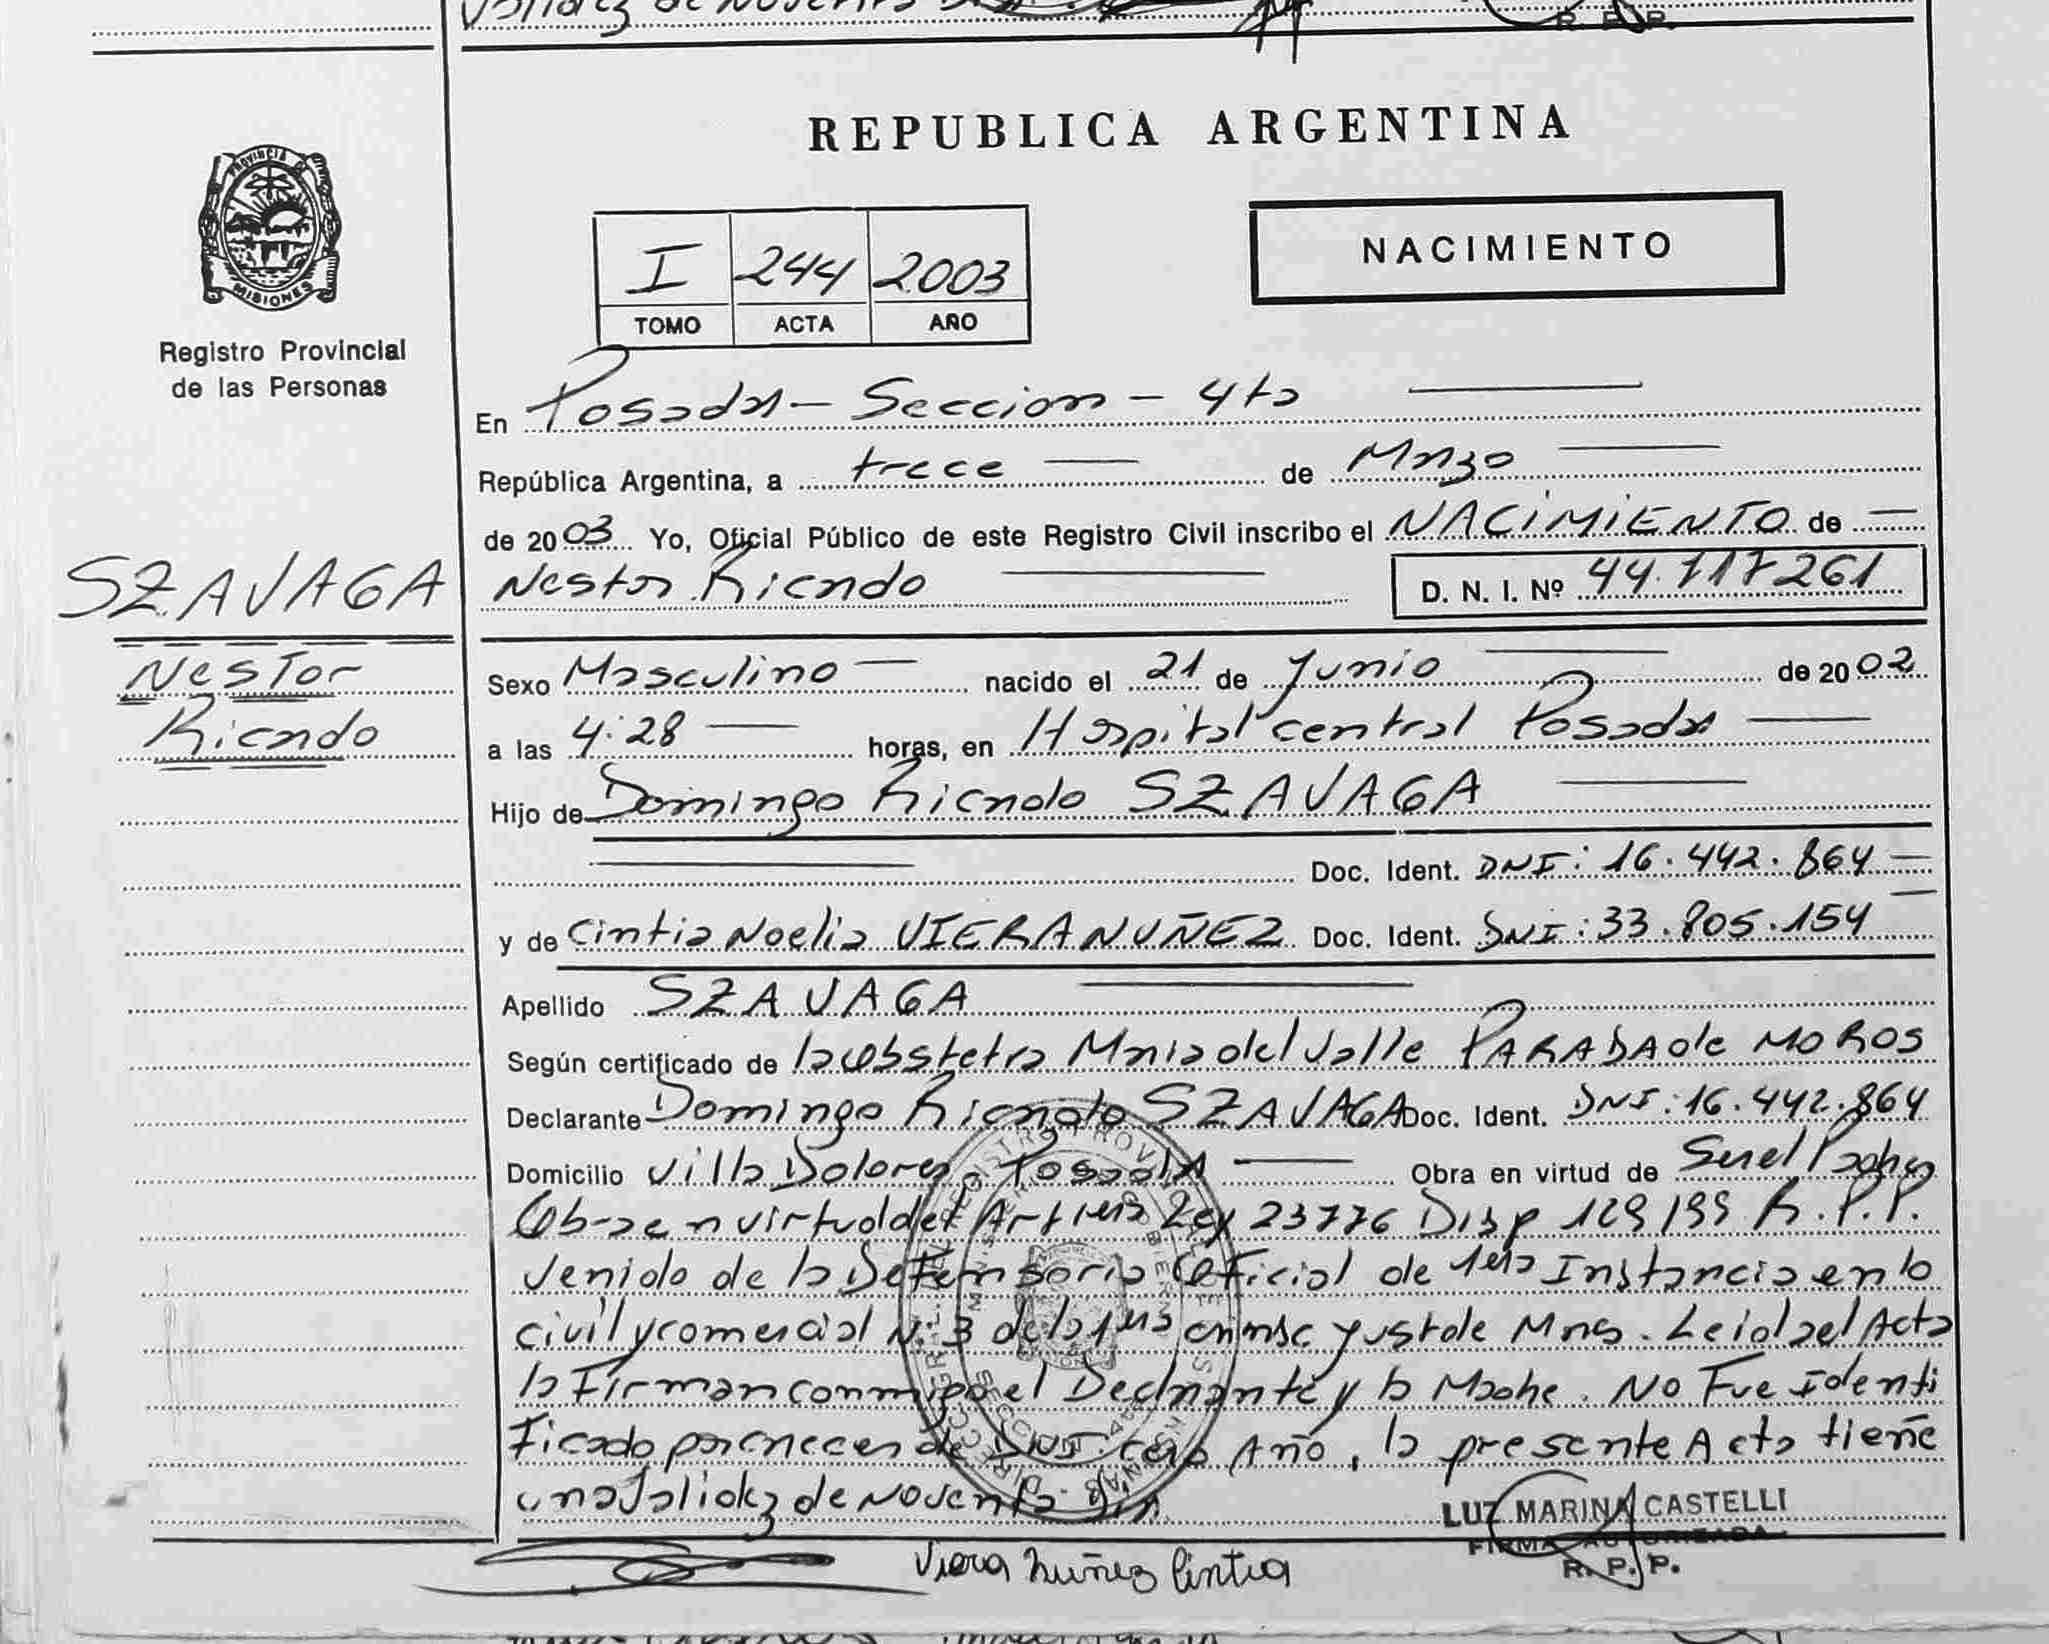 validez de Noventa
R. P. P.
REPUBLICA ARGENTINA
PROVINCIA DE
MISIONES
Registro Provincial
de las Personas
NACIMIENTO
I 244 2003
TOMO ACTA AÑO
En Posadas - Seccion - 4ta
República Argentina, a trece de Marzo
de 2003 Yo, Oficial Público de este Registro Civil inscribo el NACIMIENTO de
Nestor Ricardo D. N. I. Nº 44.117261
SZAVAGA
Nestor
Ricardo
Sexo Masculino nacido el 21 de Junio de 2002
a las 4:28 horas, en Hospital central Posadas
Hijo de Domingo Ricardo SZAVAGA
Doc. Ident. DNI: 16.442.864
y de Cintia Noelia VIERA NUÑEZ Doc. Ident. DNI: 33.805.154
Apellido SZAVAGA
Según certificado de la Obstetra Maria del Valle PARADA de MOROS
Declarante Domingo Ricardo SZAVAGA Doc. Ident. DNI: 16.442.864
Domicilio Villa Dolores Posadas Obra en virtud de Ser el Padre
Obra en virtud del Art 1ero Ley 23776 Disp 129/99 R.P.P.
venido de la Defensoria Oficial de 1era Instancia en lo
civil y comercial N: 3 de la 1era de Mnes. Leida el Acta
la Firman conmigo el Declarante y la Madre. No Fue Identi
Ficado por crecer de DNI. cero Año, la presente Acta tiene
una Validez de Noventa Dias
LUZ MARINA CASTELLI
FIRMA AUTORIZADA
R. P. P.
Viera Nuñez Cintia